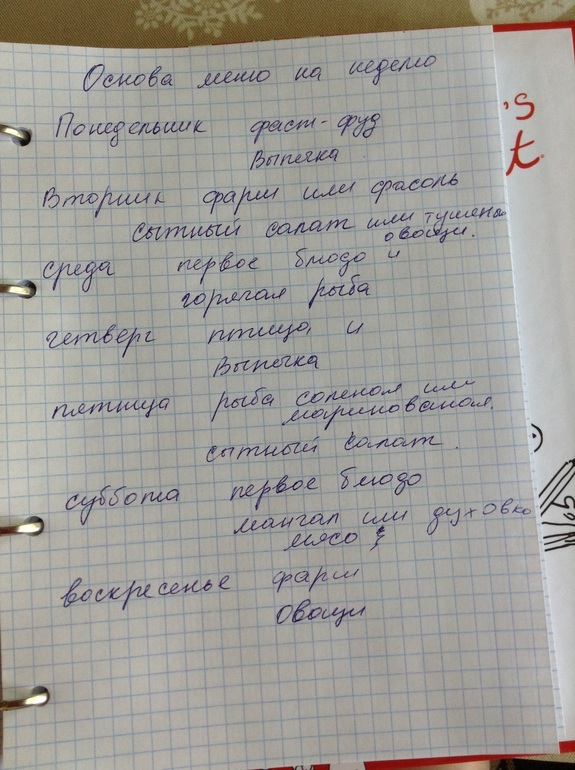 Основа меню на неделю
Понедельник фаст-фуд
Выпечка
Вторник фарш или фасоль
сытный салат или тушеные
овощи.
среда первое блюдо и
горячая рыба
четверг птица и
Выпечка
пятница рыба соленая или
маринованая.
сытный салат.
суббота первое блюдо
мангал или духовка
мясо
воскресенье фарш
Овощи
's
t.